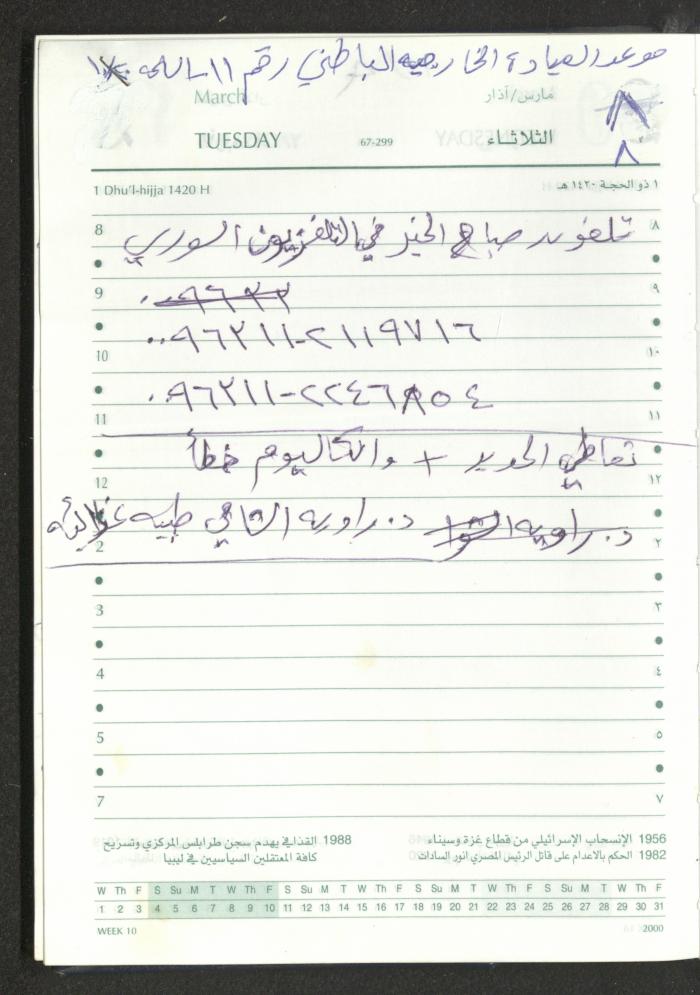 موعد العيادة الخارجيه الباطني رقم ١١
March
مارس/آذار
٨
TUESDAY
67-299
الثلاثاء
٨
1 Dhu'l-hijja 1420 H
١ ذو الحجة ١٤٢٠ هـ
8 ٨
تلفون صباح الخير في التلفزيون السوري
9 ٩
٠٠٩٦٣٢
٠٠٩٦٢١١-٢١١٩٧١٦
10 ١٠
٠٩٦٢١١-٢٢٤٦٨٥٤
11 ١١
تعاطي الحديد + والكاليوم خطأ
12 ١٢
د. راويه الشوا د. راويه الشامي طبيبه
2 ٢
3 ٣
4 ٤
5 ٥
7 ٧
1956 الإنسحاب الإسرائيلي من قطاع غزة وسيناء
1982 الحكم بالاعدام على قاتل الرئيس المصري انور السادات
1988 القذافي يهدم سجن طرابلس المركزي وتسريح
كافة المعتقلين السياسيين في ليبيا
W Th F S Su M T W Th F S Su M T W Th F S Su M T W Th F S Su M T W Th F
1 2 3 4 5 6 7 8 9 10 11 12 13 14 15 16 17 18 19 20 21 22 23 24 25 26 27 28 29 30 31
WEEK 10
2000